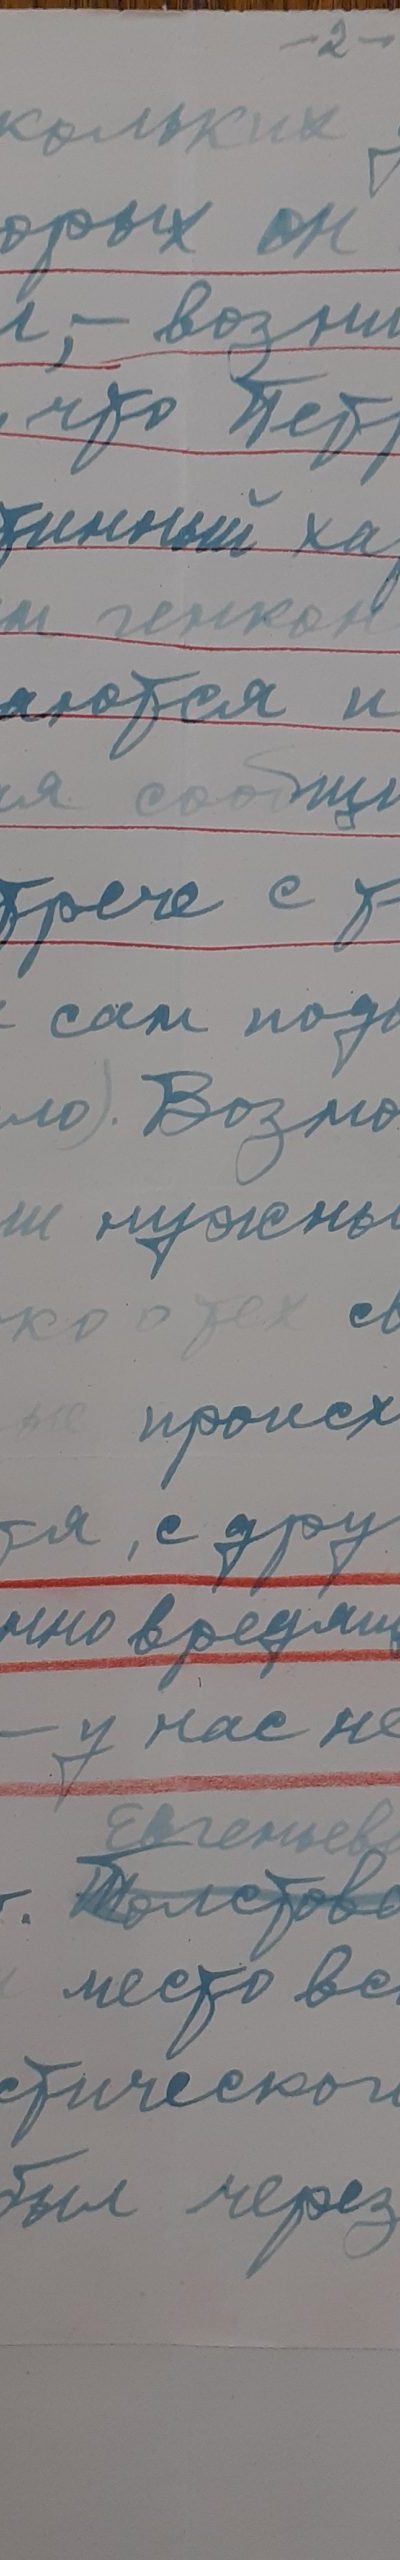 -2-
кольких
орых он
л, - возни
, что Петр
тинный хар
м генкон
аются и
ия сообщи
трече с т
сам подо
ло). Возмо
ши нужны
ко о тех св
ые происх
тся, с дру
нно вредящ
- у нас не
Евгеньева
т. Толстова
место вс
стического
был через